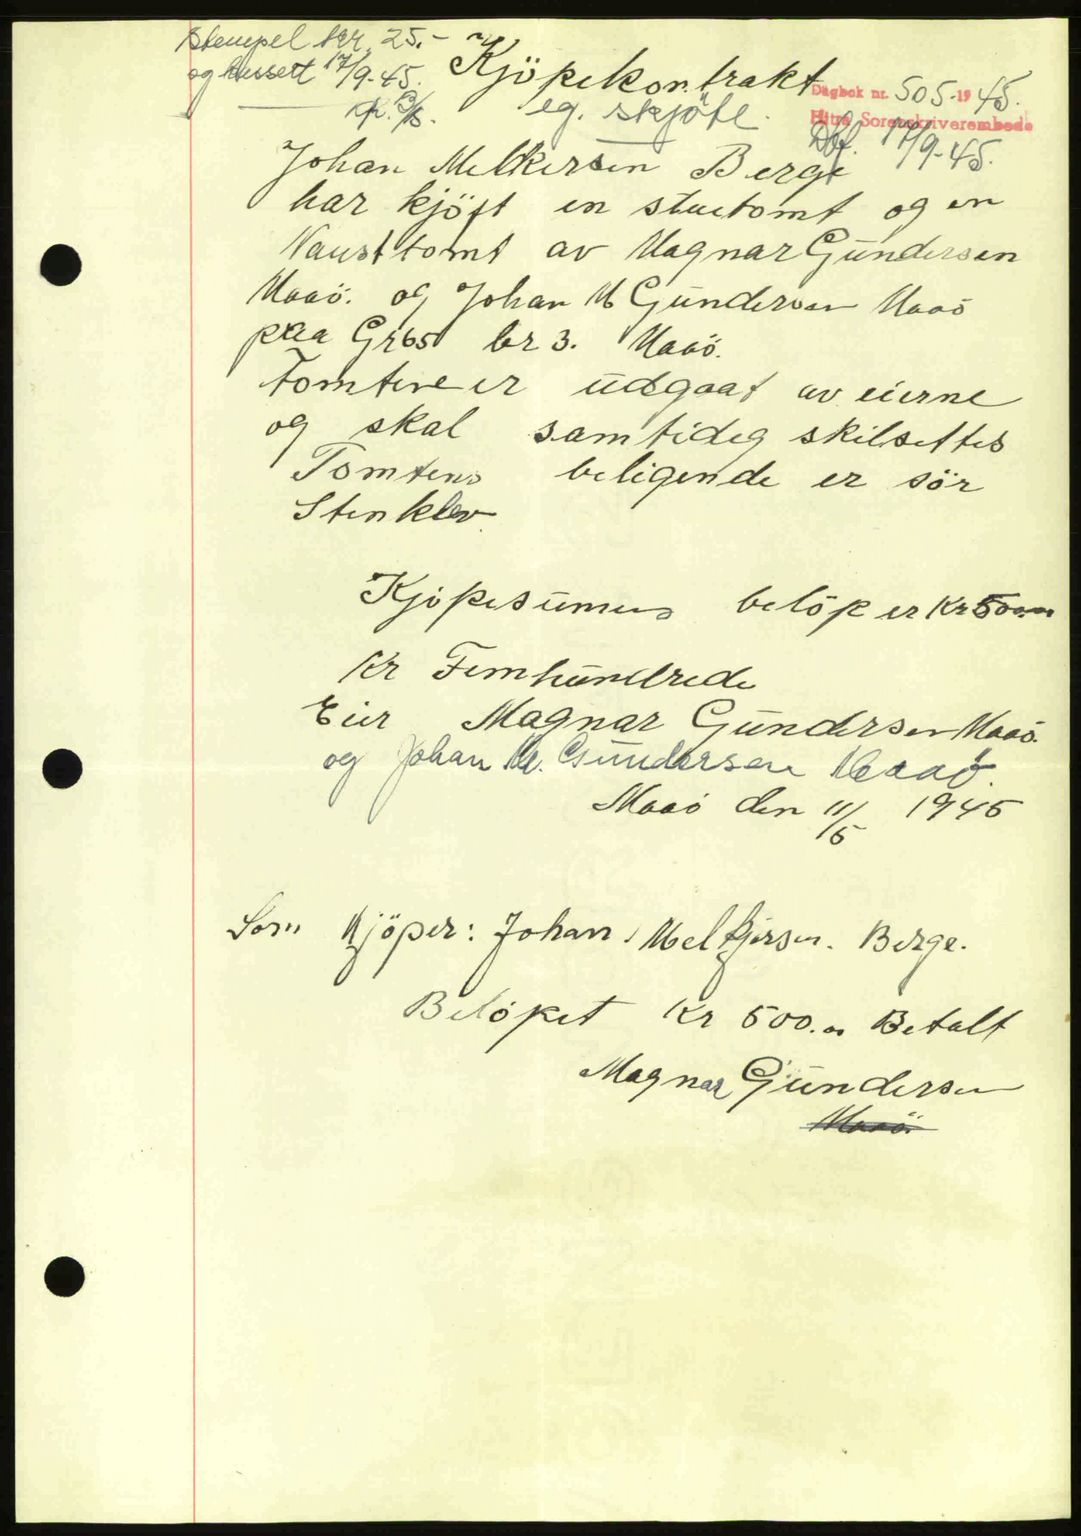 Stempel kr. 25.-
og kassert 17/9-45.
Kjöpekontrakt
eg. skjöte.
Dagbok nr. 505-1945.
Hitra Sorenskriverembede
Dbf. 17/9-45.
Johan Melkersen Berge
har kjöpt en stuetomt og en
Nausttomt av Magnar Gundersen
Maaö. og Johan M Gundersen Maaö
paa Gr 65 br 3. Maaö.
Tomtene er udgaat av eierne
og skal samtideg skilsettes
Tomtens beligende er sör
Stenklev.
Kjöpesumens belöp er Kr 500.00
Kr Femhundrede
Eier Magnar Gundersen Maaö.
og Johan M. Gundersen Maaö.
Maaö den 11/5 1945
Som Kjöper: Johan Melkjersen. Berge.
Belöpet Kr 500.00 Betalt
Magnar Gundersen
Maaö.